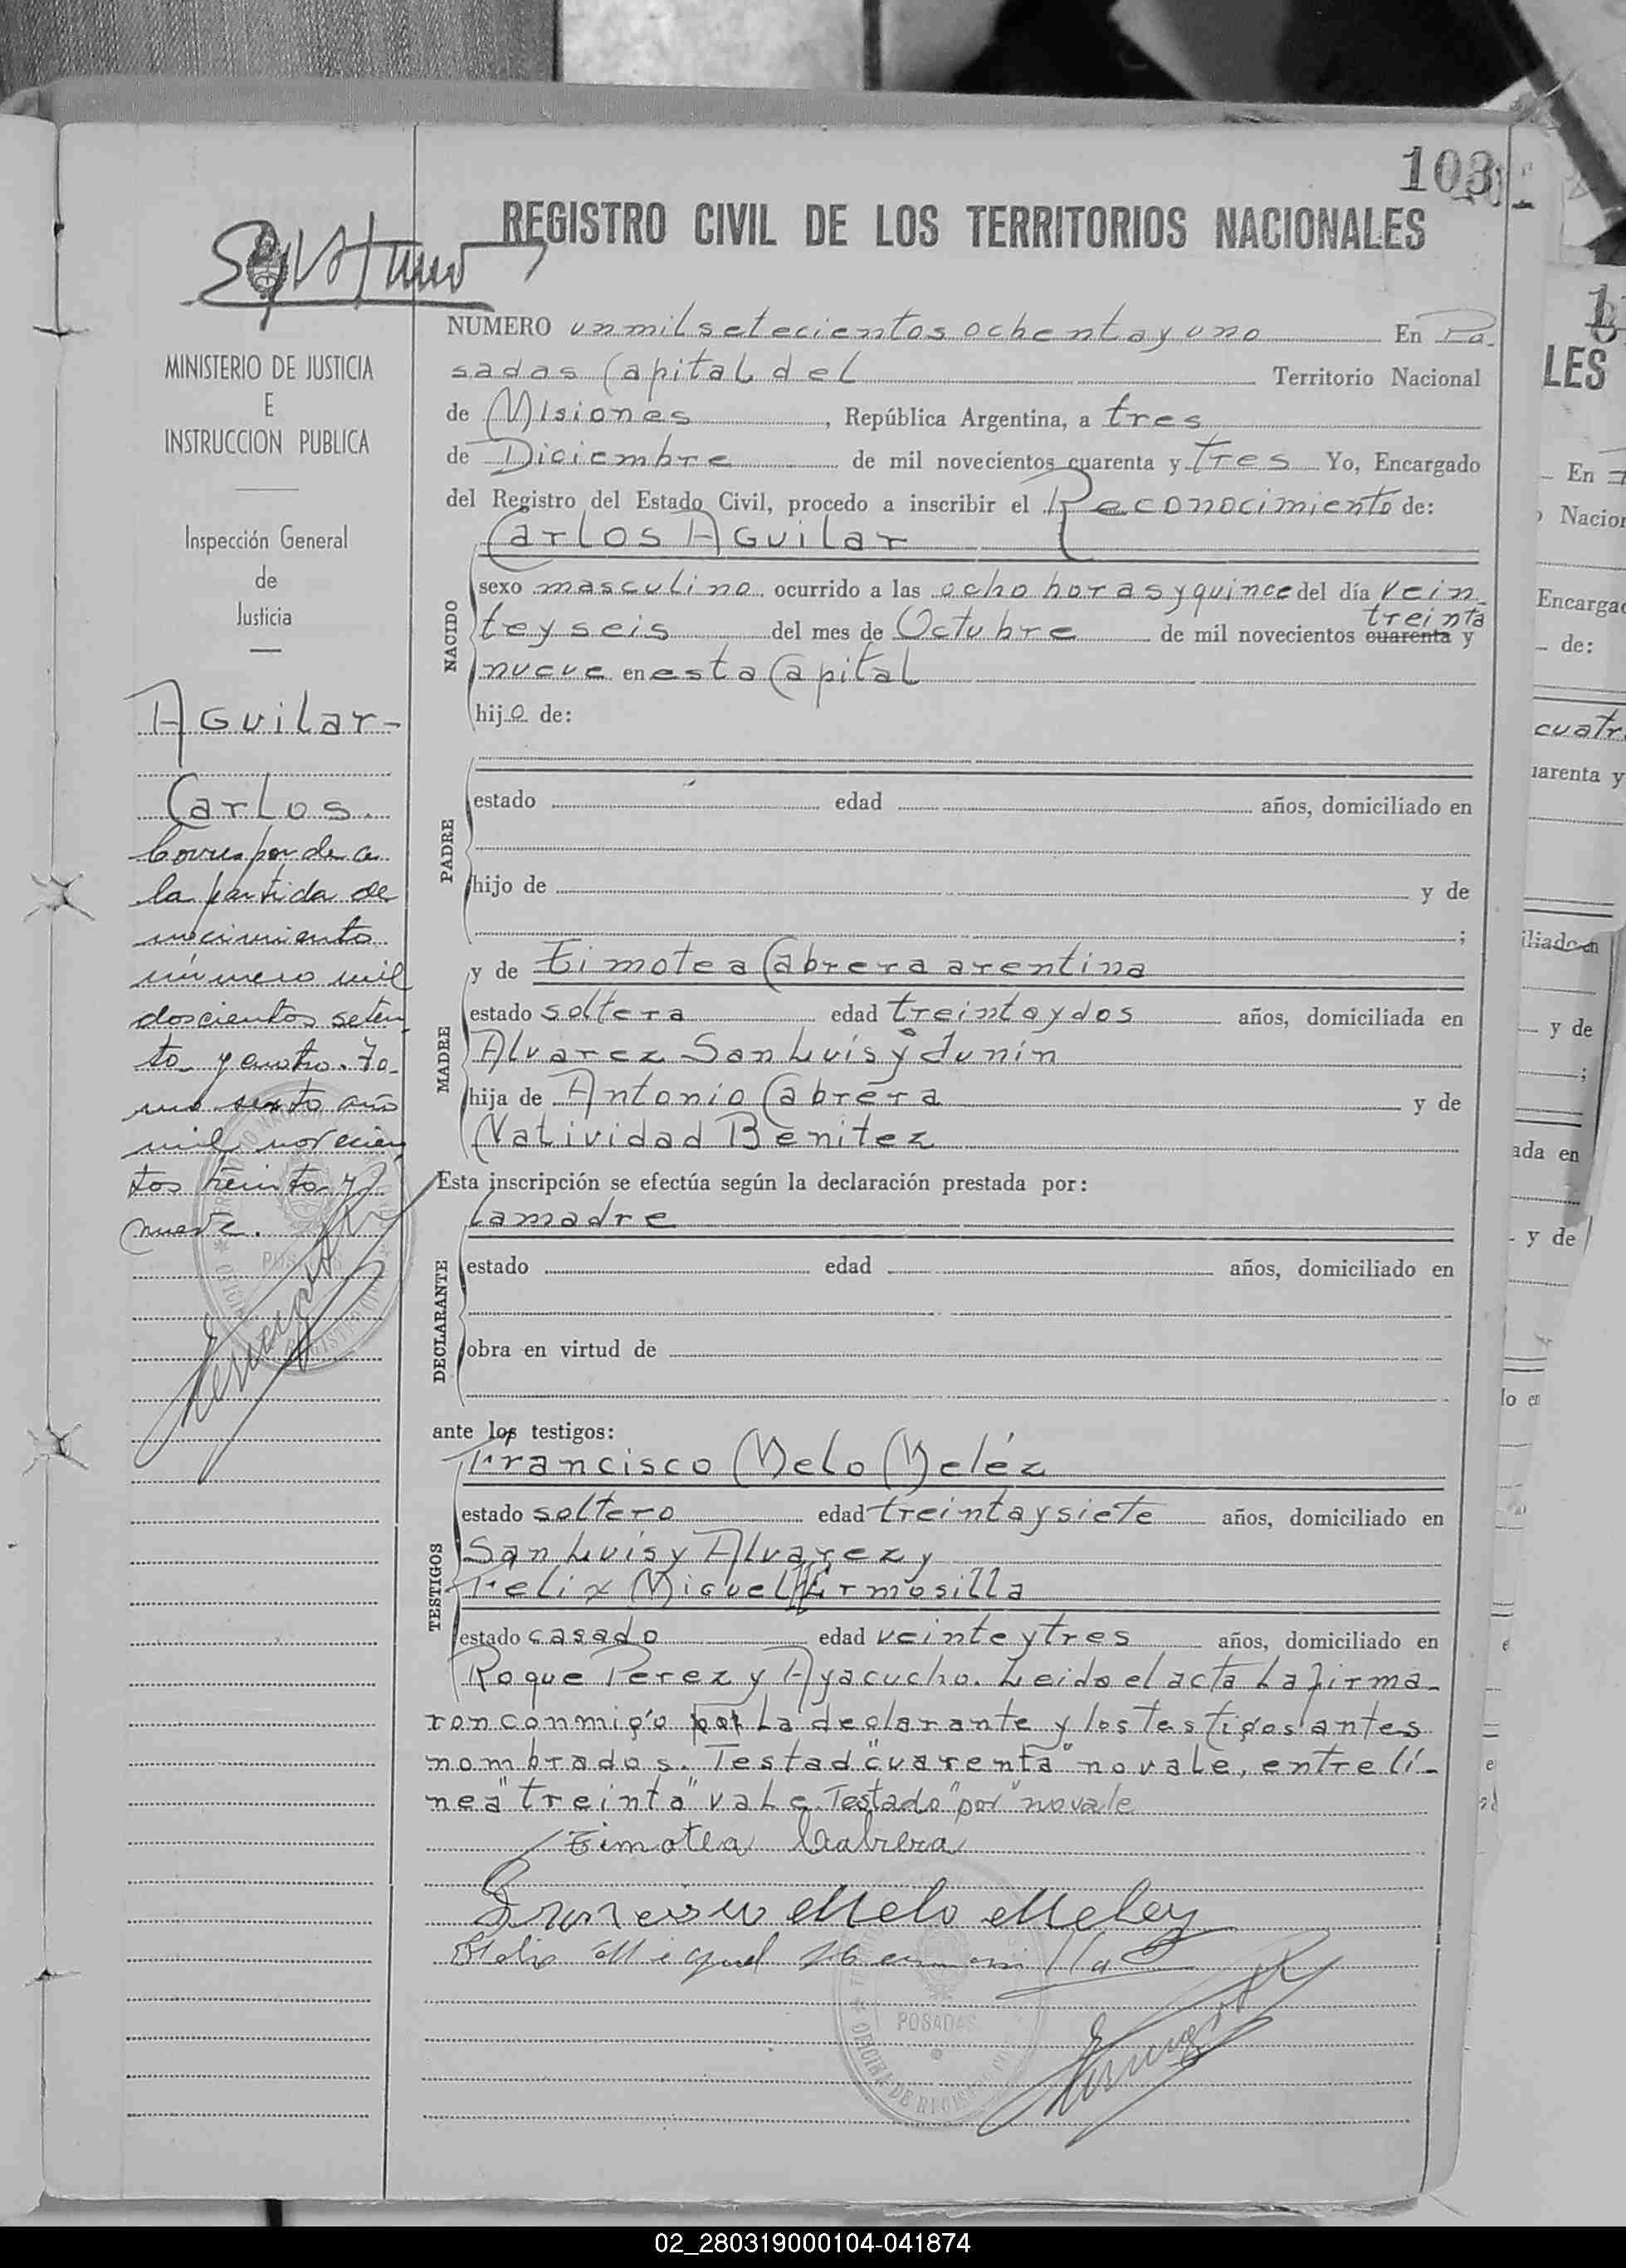 103
REGISTRO CIVIL DE LOS TERRITORIOS NACIONALES
MINISTERIO DE JUSTICIA
E
INSTRUCCION PUBLICA
Inspección General
de
Justicia
Aguilar-
Carlos.
Corresponde a
la partida de
nacimiento
número mil
doscientos seten
ta y cuatro. To-
mo sexto año
mil novecien
tos treinta y
nueve.
NUMERO un mil setecientos ochenta y uno En Po-
sadas Capital del Territorio Nacional
de Misiones, República Argentina, a tres
de Diciembre de mil novecientos cuarenta y tres Yo, Encargado
del Registro del Estado Civil, procedo a inscribir el Reconocimiento de:
Carlos Aguilar
NACIDO
sexo masculino ocurrido a las ocho horas y quince del día vein-
treinta
teyseis del mes de Octubre de mil novecientos cuarenta y
nueve en esta Capital
hijo de:
PADRE
estado edad años, domiciliado en
hijo de y de
;
MADRE
y de Timotea Cabrera arentina
estado soltera edad treinta y dos años, domiciliada en
Alvarez San Luis y Junín
hija de Antonio Cabrera y de
Natividad Benitez
Esta inscripción se efectúa según la declaración prestada por:
DECLARANTE
la madre
estado edad años, domiciliado en
obra en virtud de
ante los testigos:
TESTIGOS
Francisco Melo Meléz
estado soltero edad treinta y siete años, domiciliado en
San Luis y Alvarez y
Felix Miguel Hermosilla
estado casado edad veinte y tres años, domiciliado en
Roque Perez y Ayacucho. Leida el acta la firma-
ron conmigo por la declarante y los testigos antes
nombrados. Testad "cuarenta" no vale, entre lí-
nea "treinta" vale. Testado "por" no vale
Timotea Cabrera
Francisco Melo Melez
Miguel
POSADAS
OFICINA DE REGISTRO
LES
En
Nacion
Encargad
de:
cuatr
uarenta y
iliado en
y de
;
ada en
y de
lo en
02_280319000104-041874